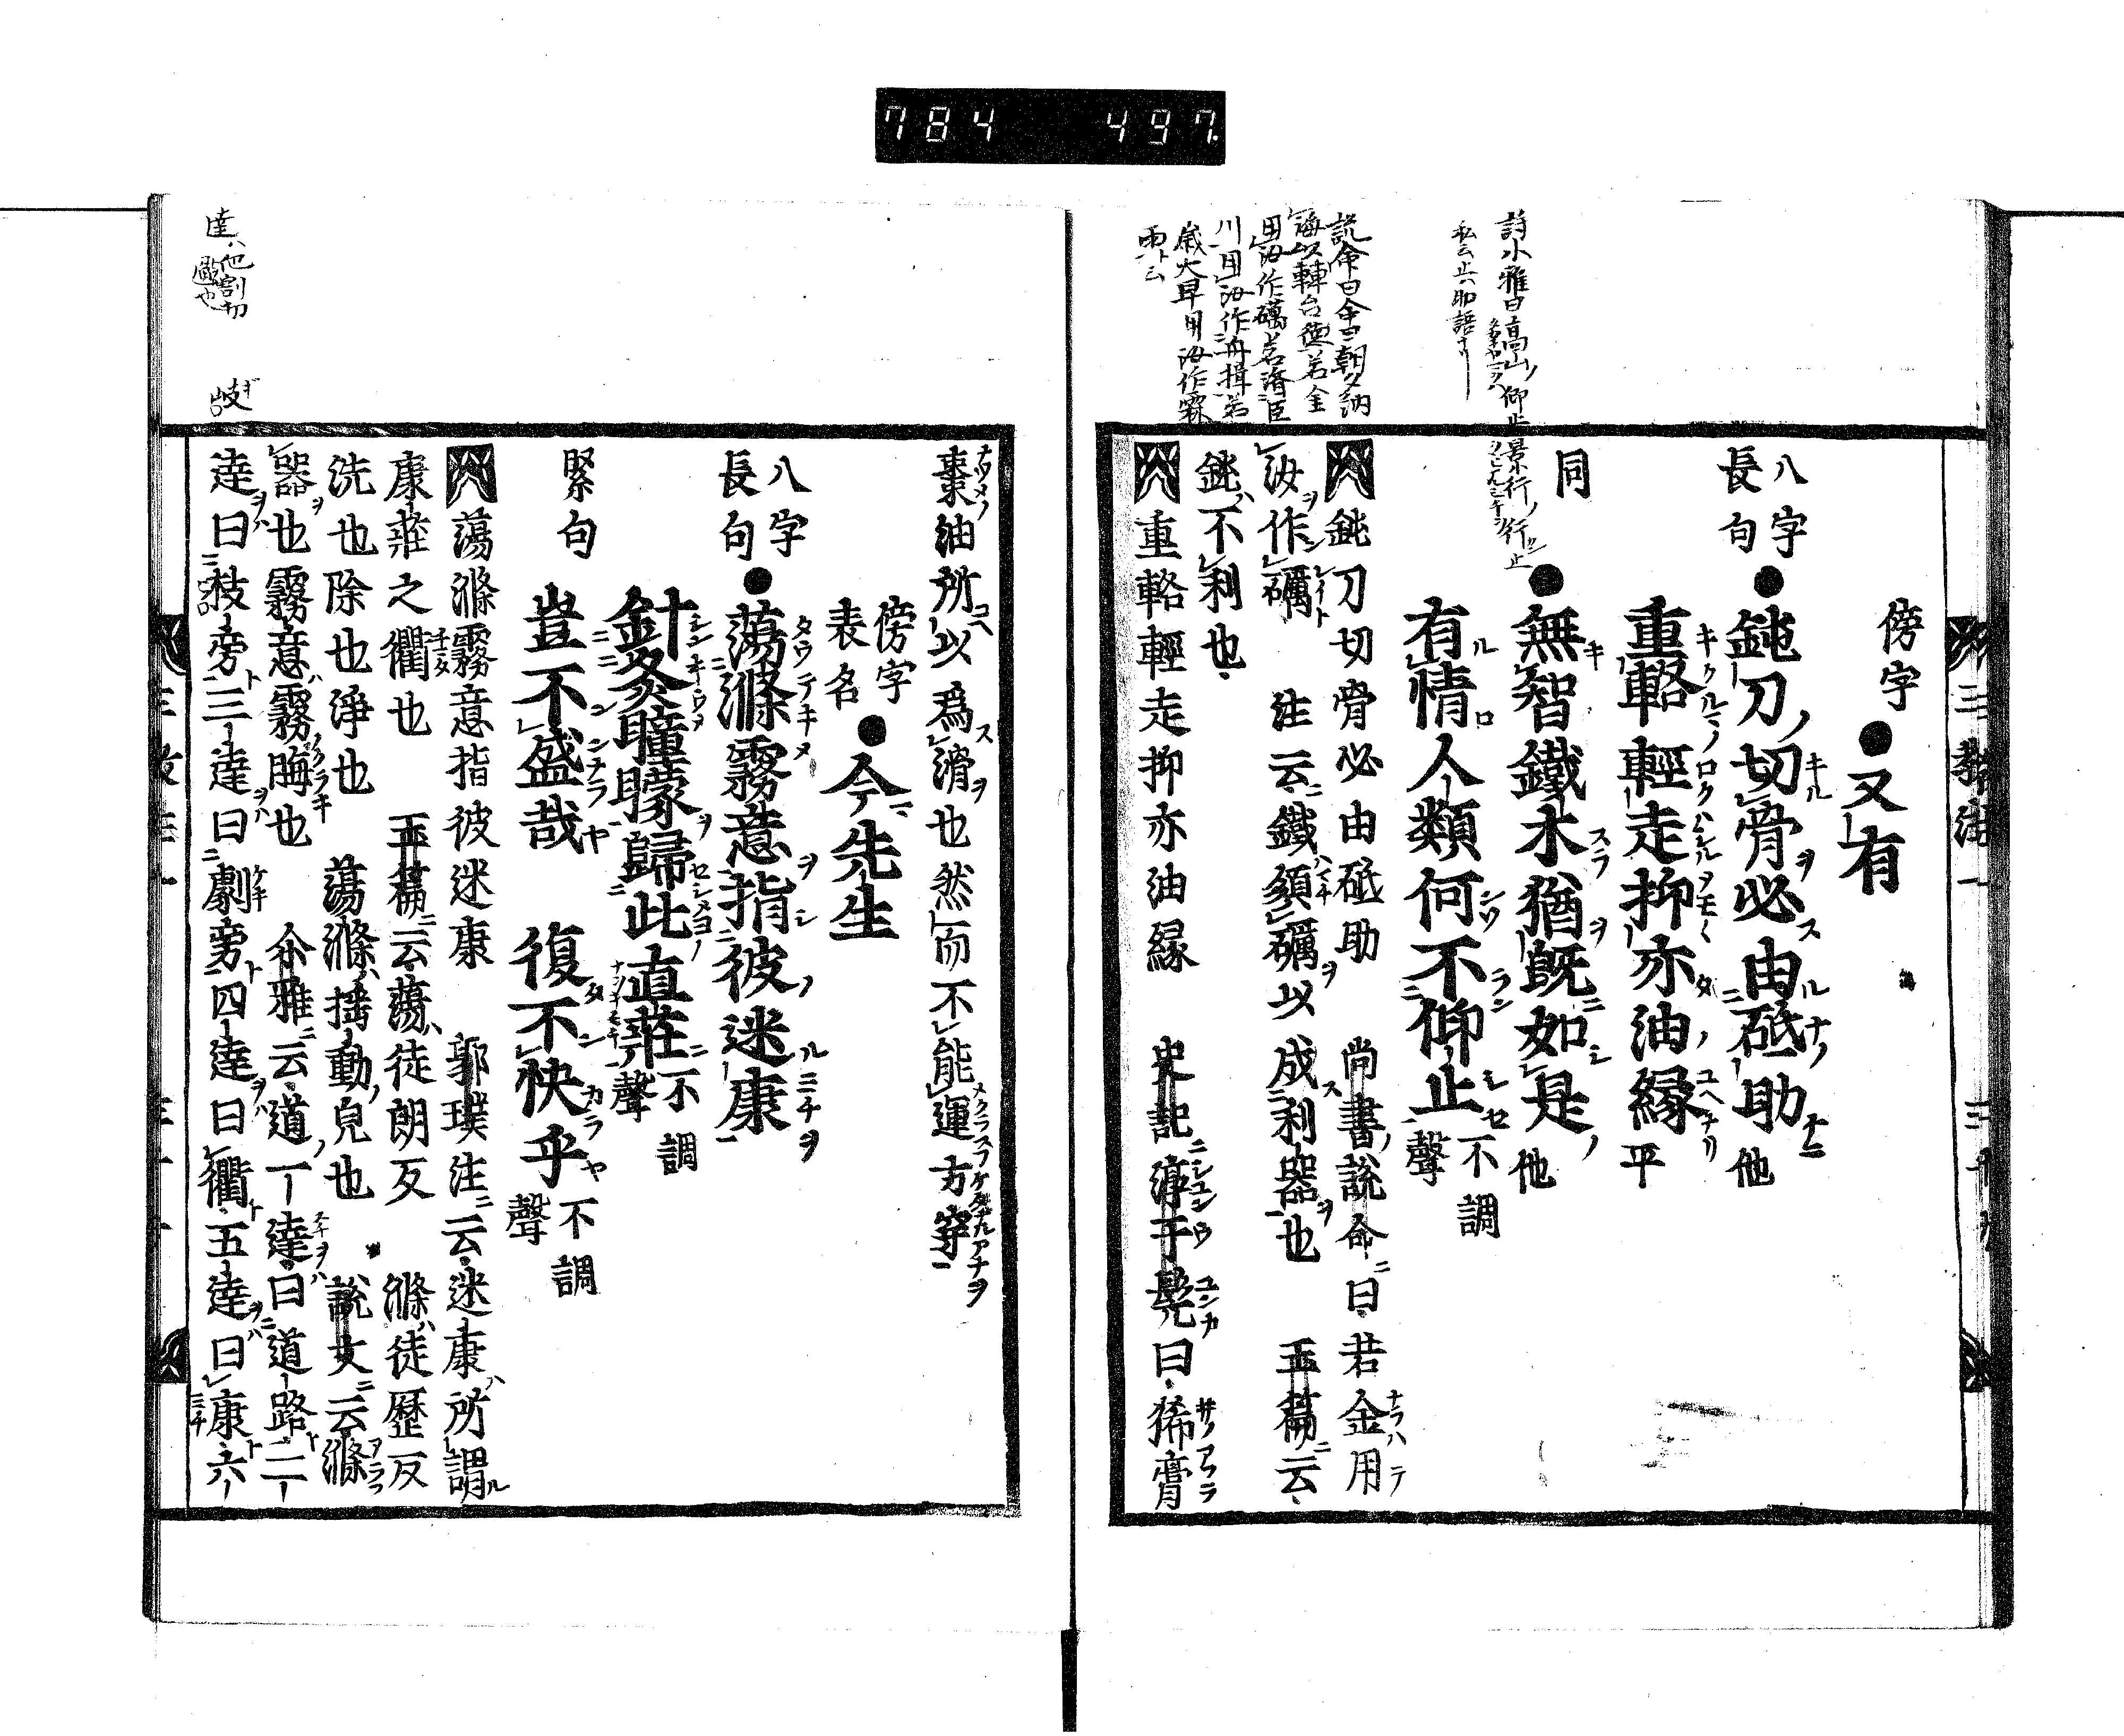 784 497
詩小雅曰高山仰止景行行止
私云止ハ助語ナリ
説命曰命曰朝夕納
誨以輔台徳若金
用汝作礪若濟巨
川用汝作舟揖若
歳大旱用汝作霖
雨ト云
傍字●又有
八字
長句●鈍刀切骨必由砥助他
重輅輕走抑亦油縁平
同●無智鐵木猶既如是他
有情人類何不仰止不調聲
鈍刀切骨必由砥助 尚書説命曰若金用
汝作礪 注云鐵須礪以成利器也 玉篇云
鈍不利也
重輅輕走抑亦油縁 史記淳于髡曰豨膏
三教注一 三十九
棗油所以為滑也然而不能運方穿
傍字
表名●今先生
八字
長句●蕩滌霧意指彼迷康
針灸瞳矇歸此直莊不調聲
緊句 豈不盛哉 復不快乎不調聲
蕩滌霧意指彼迷康 郭璞注云迷康所謂
康莊之衢也 玉篇云蕩徒朗反 滌徒歷反
洗也除也淨也 蕩滌搖動皃也 説文云滌
器也霧意霧晦也 尒雅云道一達曰道路二
達曰歧旁三達曰劇旁四達曰衢五達曰康六
達ハ他割切